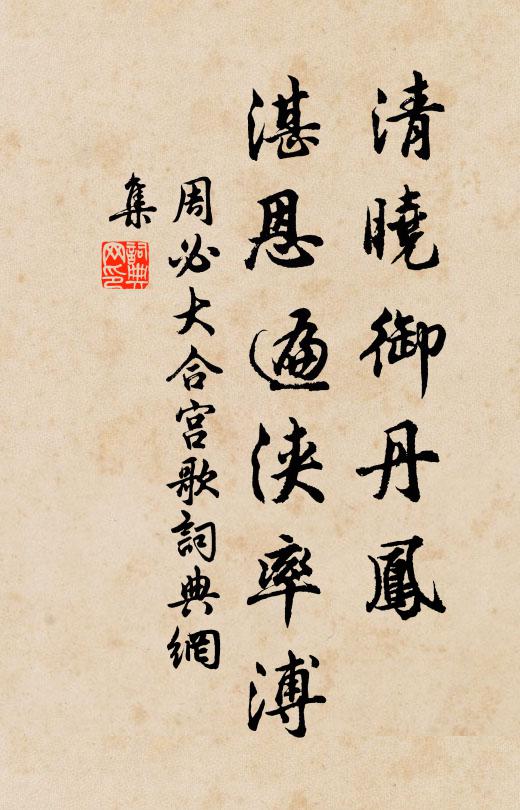 清曉御丹鳳
湛恩遍浹率溥
周必大合宮歌詞典網
集
詞典網印